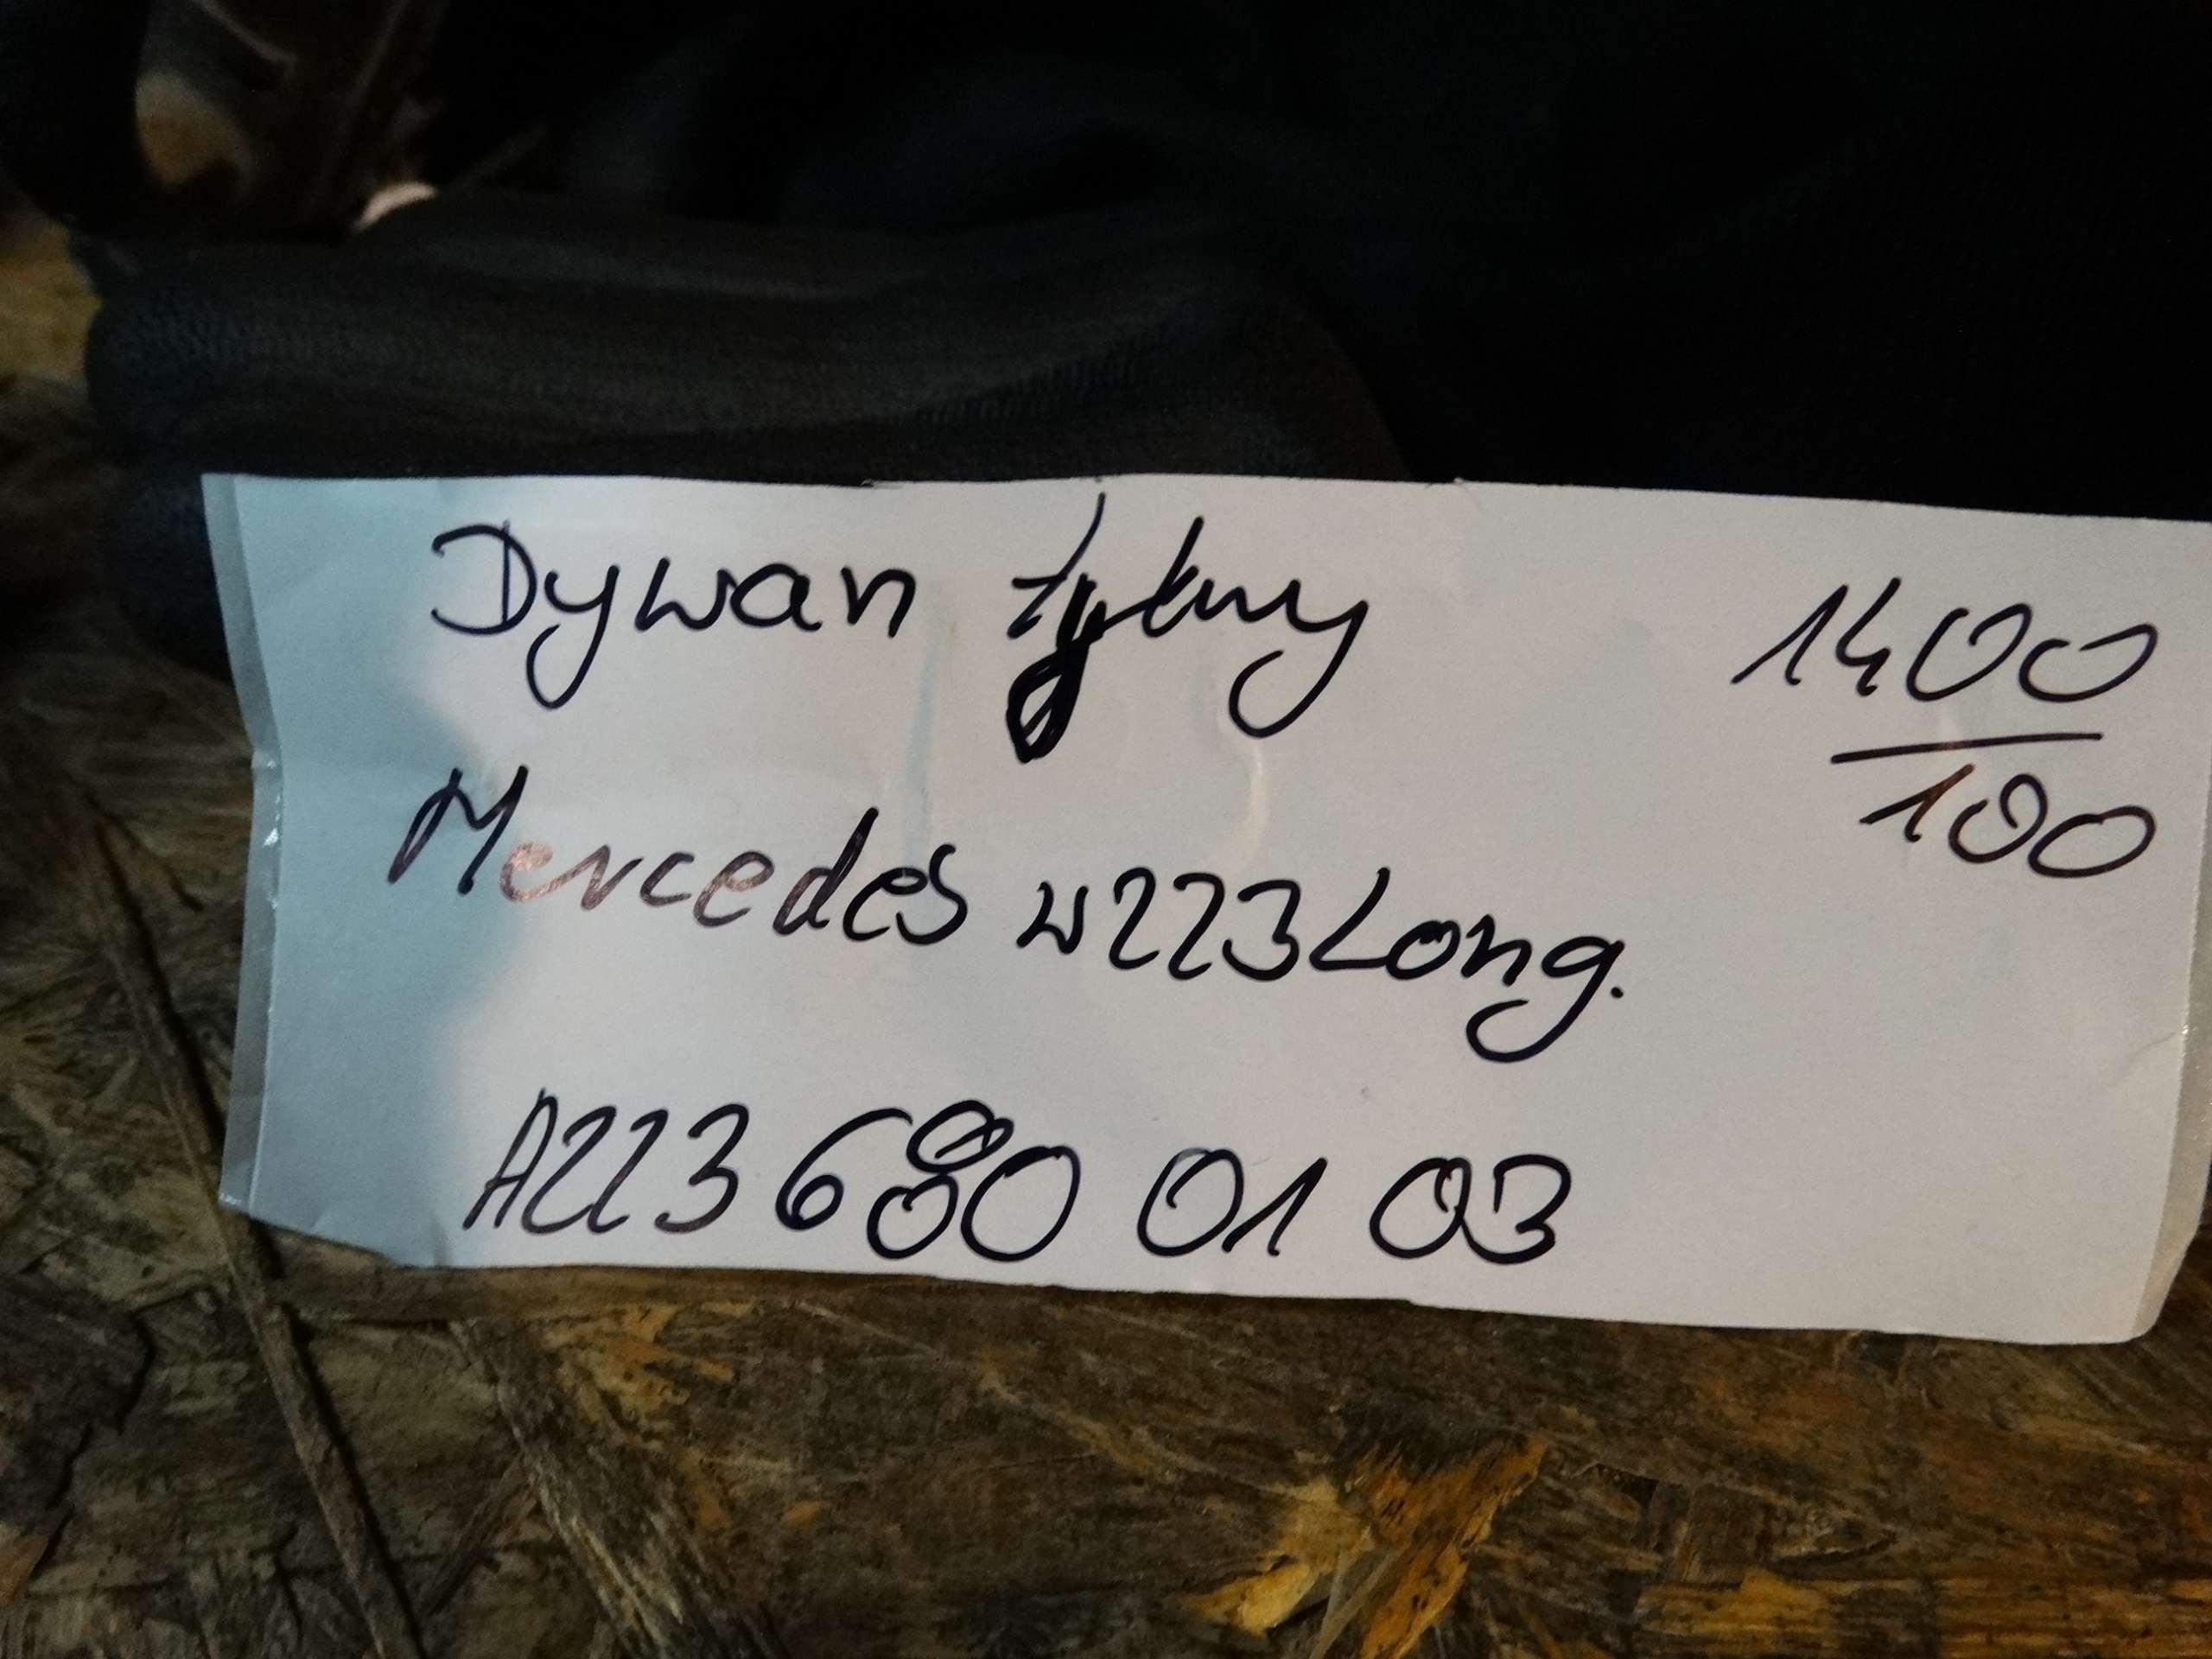 Dywan tylny
1400
100
Mercedes w223 Long.
A223 680 01 03